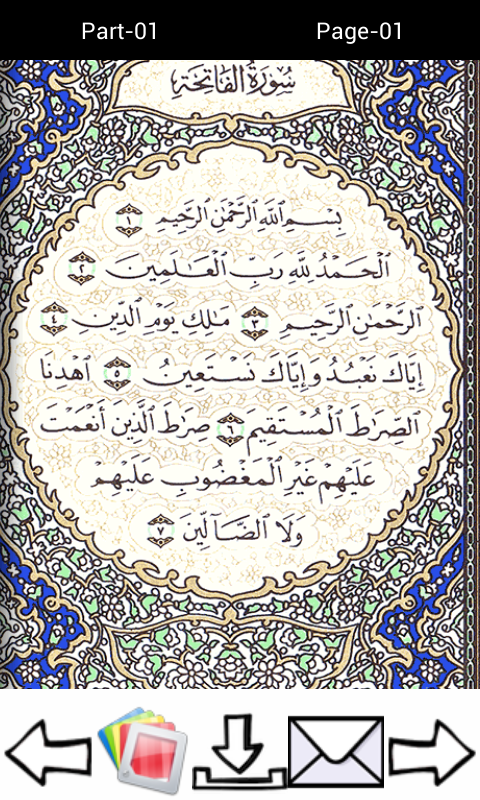 Part-01 Page-01
سُورَةُ الفَاتِحَةِ
بِسْمِ ٱللَّهِ ٱلرَّحْمَٰنِ ٱلرَّحِيمِ ١
ٱلْحَمْدُ لِلَّهِ رَبِّ ٱلْعَٰلَمِينَ ٢
ٱلرَّحْمَٰنِ ٱلرَّحِيمِ ٣ مَٰلِكِ يَوْمِ ٱلدِّينِ ٤
إِيَّاكَ نَعْبُدُ وَإِيَّاكَ نَسْتَعِينُ ٥ ٱهْدِنَا
ٱلصِّرَٰطَ ٱلْمُسْتَقِيمَ ٦ صِرَٰطَ ٱلَّذِينَ أَنْعَمْتَ
عَلَيْهِمْ غَيْرِ ٱلْمَغْضُوبِ عَلَيْهِمْ
وَلَا ٱلضَّآلِّينَ ٧